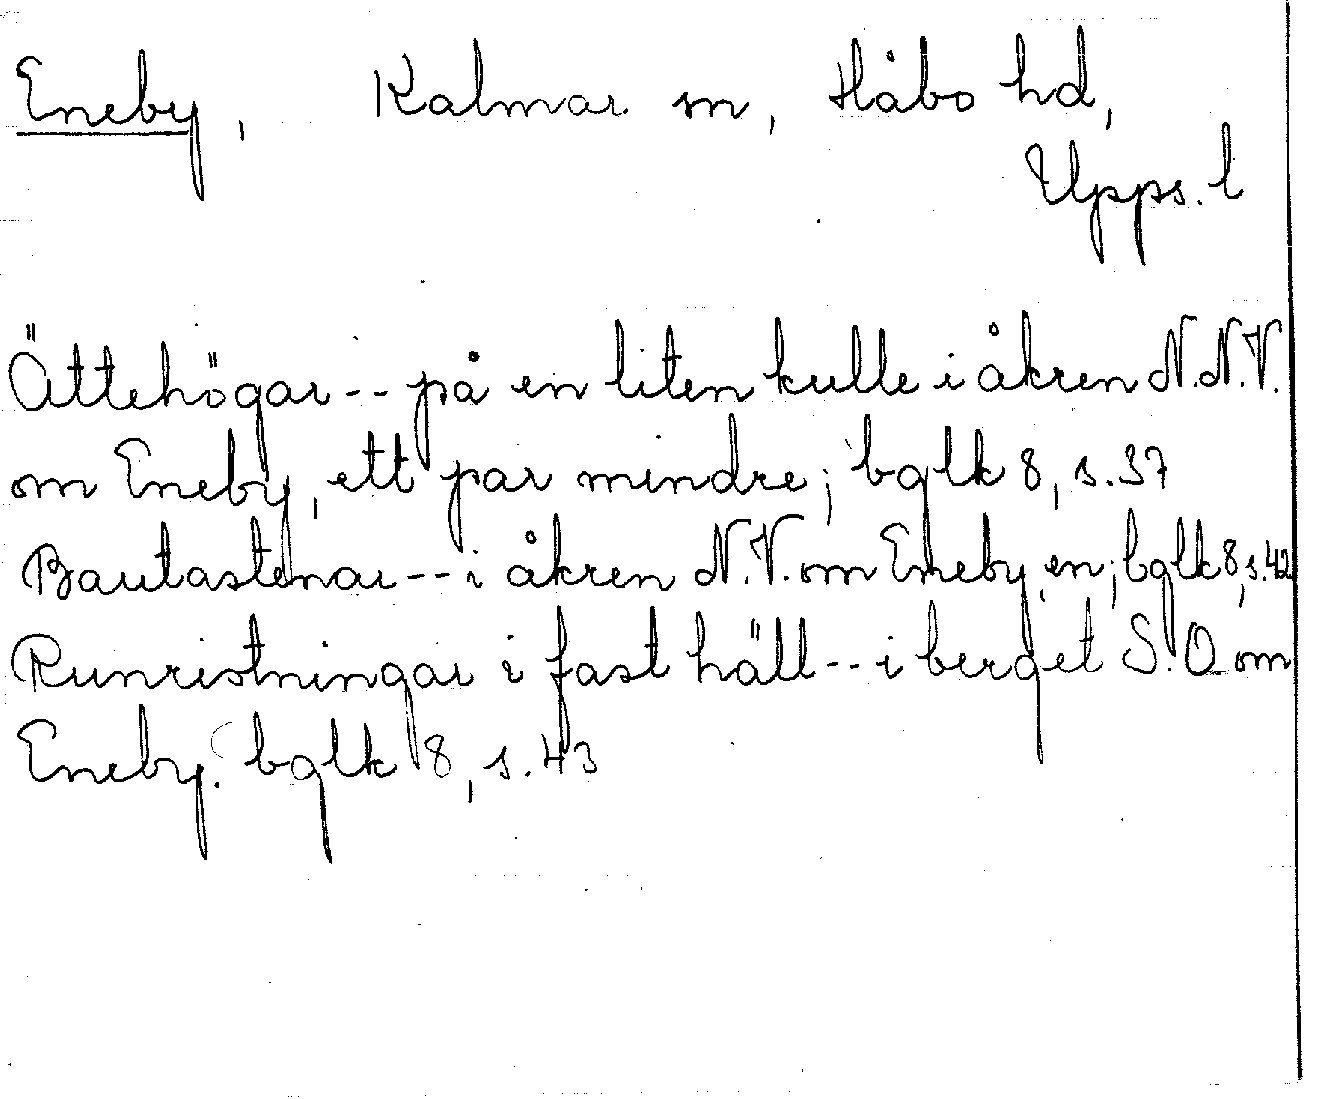 Eneby, Kalmar sn, Håbo hd,
Upps. l
Ättehögar -- på en liten kulle i åkren N.N.V.
om Eneby, ett par mindre; bglk 8, s. 37
Bautastenar -- i åkren N.V. om Eneby, en; bglk 8, s. 42
Runristningar i fast häll -- i berget S.O om
Eneby. bglk 8, s. 43